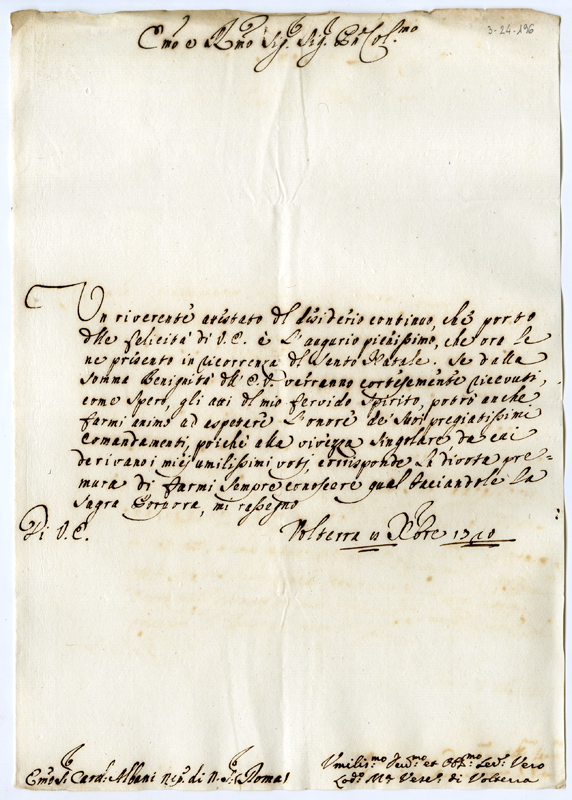 3-24-196
Emo e Rmo Sig. Sig. Pne Col.mo
Un riverente attestato del disiderio continuo, che porto
delle felicità di V.E. è l'augurio pienissimo, che ora le
ne presento in ricorrenza del Santo Natale. Se dalla
somma Benignità dell'E.V. verranno cortesemente ricevuti,
come spero, gli atti del mio fervido Spirito, potrò anche
farmi animo ad aspetare l'onore de' suoi pregiatissimi
Comandamenti, poiche alla vivezza singolare da cui
derivano i miej umilissimi votj, corrisponde la divota pre=
mura di farmi sempre conoscere qual baciandole la
Sagra Porpora, mi rassegno
Di V.E. Volterra Xbre 1710
Emo S.r Card.l Albani Nip. di N.S. Roma
Umiliss.mo et Obb.mo Vero
Lod.o Ma Vesc.o di Volterra